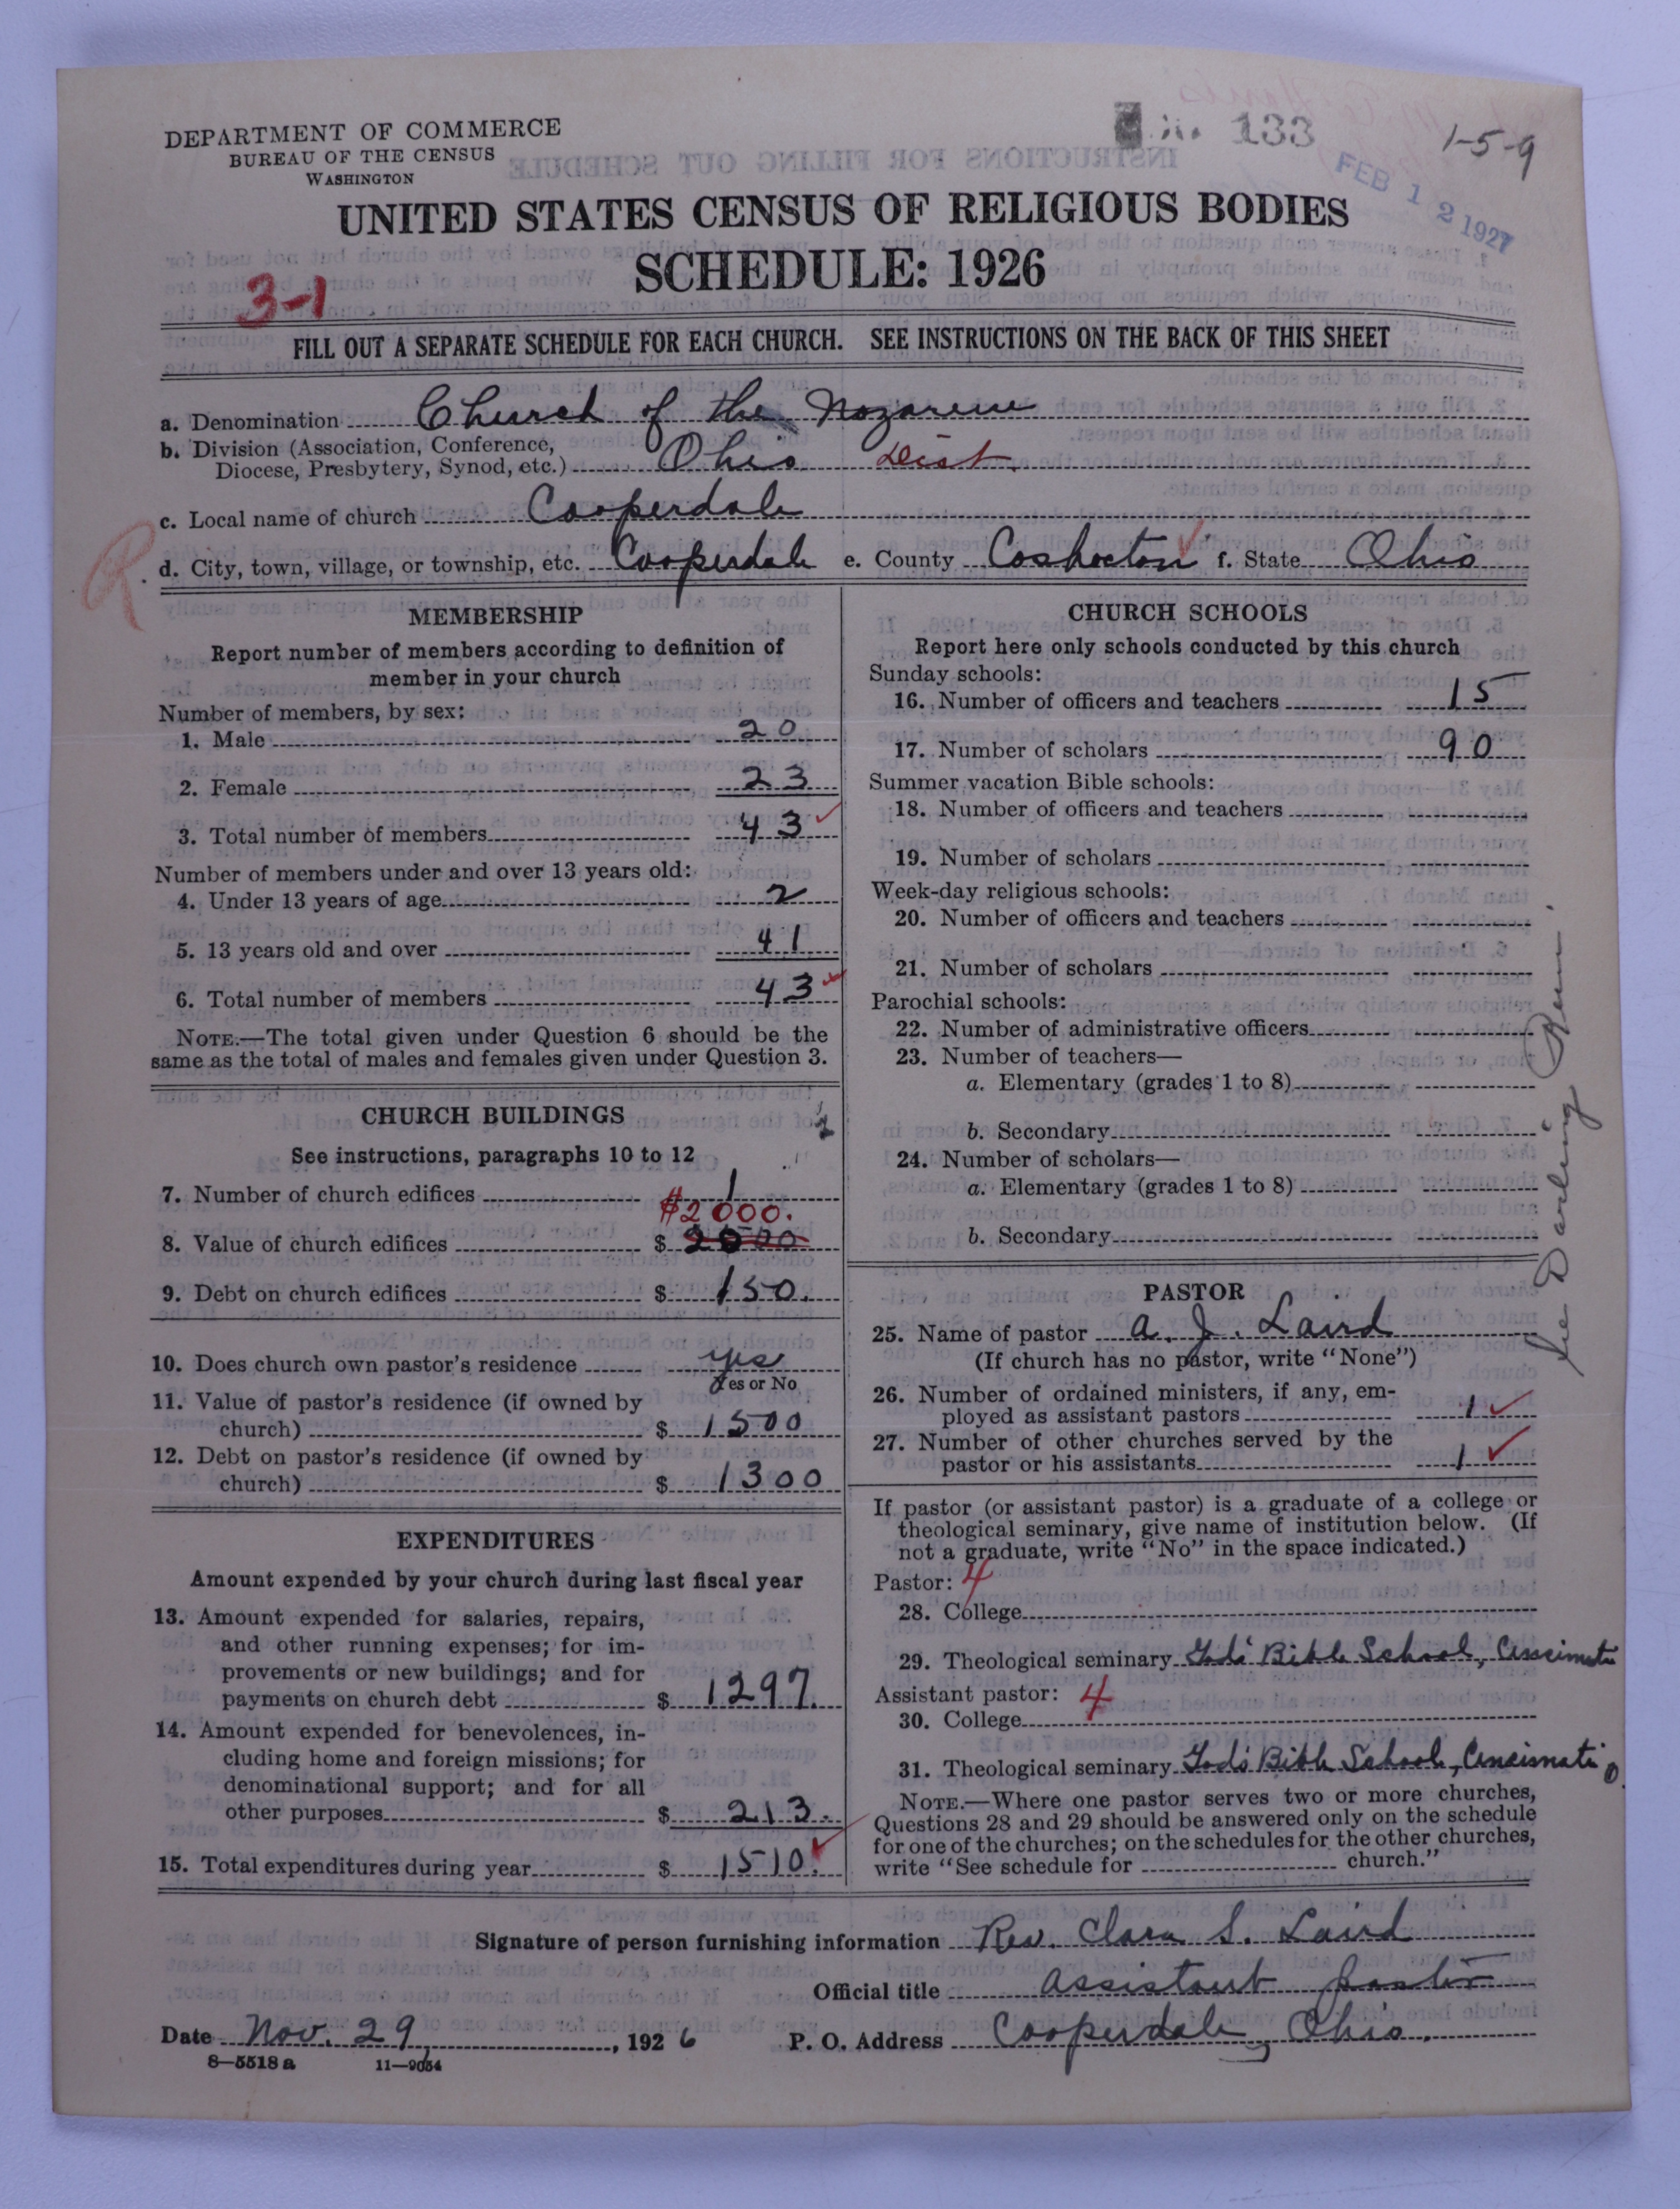 DEPARTMENT OF COMMERCE
BUREAU OF THE CENSUS
WASHINGTON
133
1-5-9
FEB 12 1927
UNITED STATES CENSUS OF RELIGIOUS BODIES
SCHEDULE: 1926
3-1
FILL OUT A SEPARATE SCHEDULE FOR EACH CHURCH. SEE INSTRUCTIONS ON THE BACK OF THIS SHEET
a. Denomination Church of the Nazarene
b. Division (Association, Conference,
Diocese, Presbytery, Synod, etc.) Ohio Dist.
c. Local name of church Cooperdale
R
d. City, town, village, or township, etc. Cooperdale e. County Coshocton f. State Ohio
MEMBERSHIP
Report number of members according to definition of
member in your church
Number of members, by sex:
1. Male 20
2. Female 23
3. Total number of members 43
Number of members under and over 13 years old:
4. Under 13 years of age 2
5. 13 years old and over 41
6. Total number of members 43
NOTE.—The total given under Question 6 should be the
same as the total of males and females given under Question 3.
CHURCH BUILDINGS
See instructions, paragraphs 10 to 12
7. Number of church edifices 1
$2000.
8. Value of church edifices $ 2000
9. Debt on church edifices $ 150.
10. Does church own pastor's residence yes
Yes or No
11. Value of pastor's residence (if owned by
church) $ 1500
12. Debt on pastor's residence (if owned by
church) $ 1300
EXPENDITURES
Amount expended by your church during last fiscal year
13. Amount expended for salaries, repairs,
and other running expenses; for im-
provements or new buildings; and for
payments on church debt $ 1297.
14. Amount expended for benevolences, in-
cluding home and foreign missions; for
denominational support; and for all
other purposes $ 213.
15. Total expenditures during year $ 1510.
CHURCH SCHOOLS
Report here only schools conducted by this church
Sunday schools:
16. Number of officers and teachers 15
17. Number of scholars 90
Summer vacation Bible schools:
18. Number of officers and teachers
19. Number of scholars
Week-day religious schools:
20. Number of officers and teachers
21. Number of scholars
Parochial schools:
22. Number of administrative officers
23. Number of teachers—
a. Elementary (grades 1 to 8)
b. Secondary
24. Number of scholars—
a. Elementary (grades 1 to 8)
b. Secondary
See Darling Run
PASTOR
25. Name of pastor A. J. Laird
(If church has no pastor, write "None")
26. Number of ordained ministers, if any, em-
ployed as assistant pastors 1
27. Number of other churches served by the
pastor or his assistants 1
If pastor (or assistant pastor) is a graduate of a college or
theological seminary, give name of institution below. (If
not a graduate, write "No" in the space indicated.)
Pastor: 4
28. College
29. Theological seminary God's Bible School, Cincinnati
Assistant pastor: 4
30. College
31. Theological seminary God's Bible School, Cincinnati O
NOTE.—Where one pastor serves two or more churches,
Questions 28 and 29 should be answered only on the schedule
for one of the churches; on the schedules for the other churches,
write "See schedule for church."
Signature of person furnishing information Rev. Clara S. Laird
Official title Assistant pastor
Date Nov. 29, 1926 P. O. Address Cooperdale, Ohio.
8—5518 a 11—9054